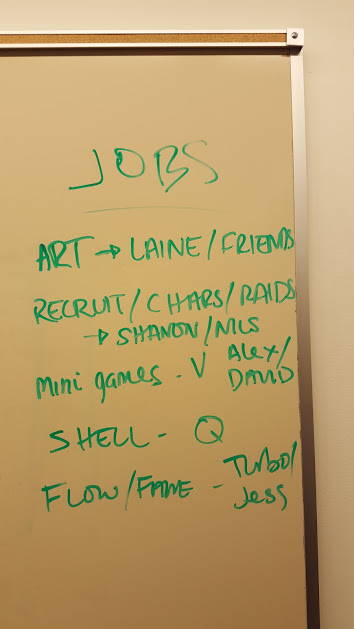 JOBS
ART → LAINE/FRIENDS
RECRUIT/CHARS/RAIDS
→ SHANON/NILS
Mini games - V Alex/
DAVID
SHELL - Q
FLOW/FAME - TURBO/
Jess